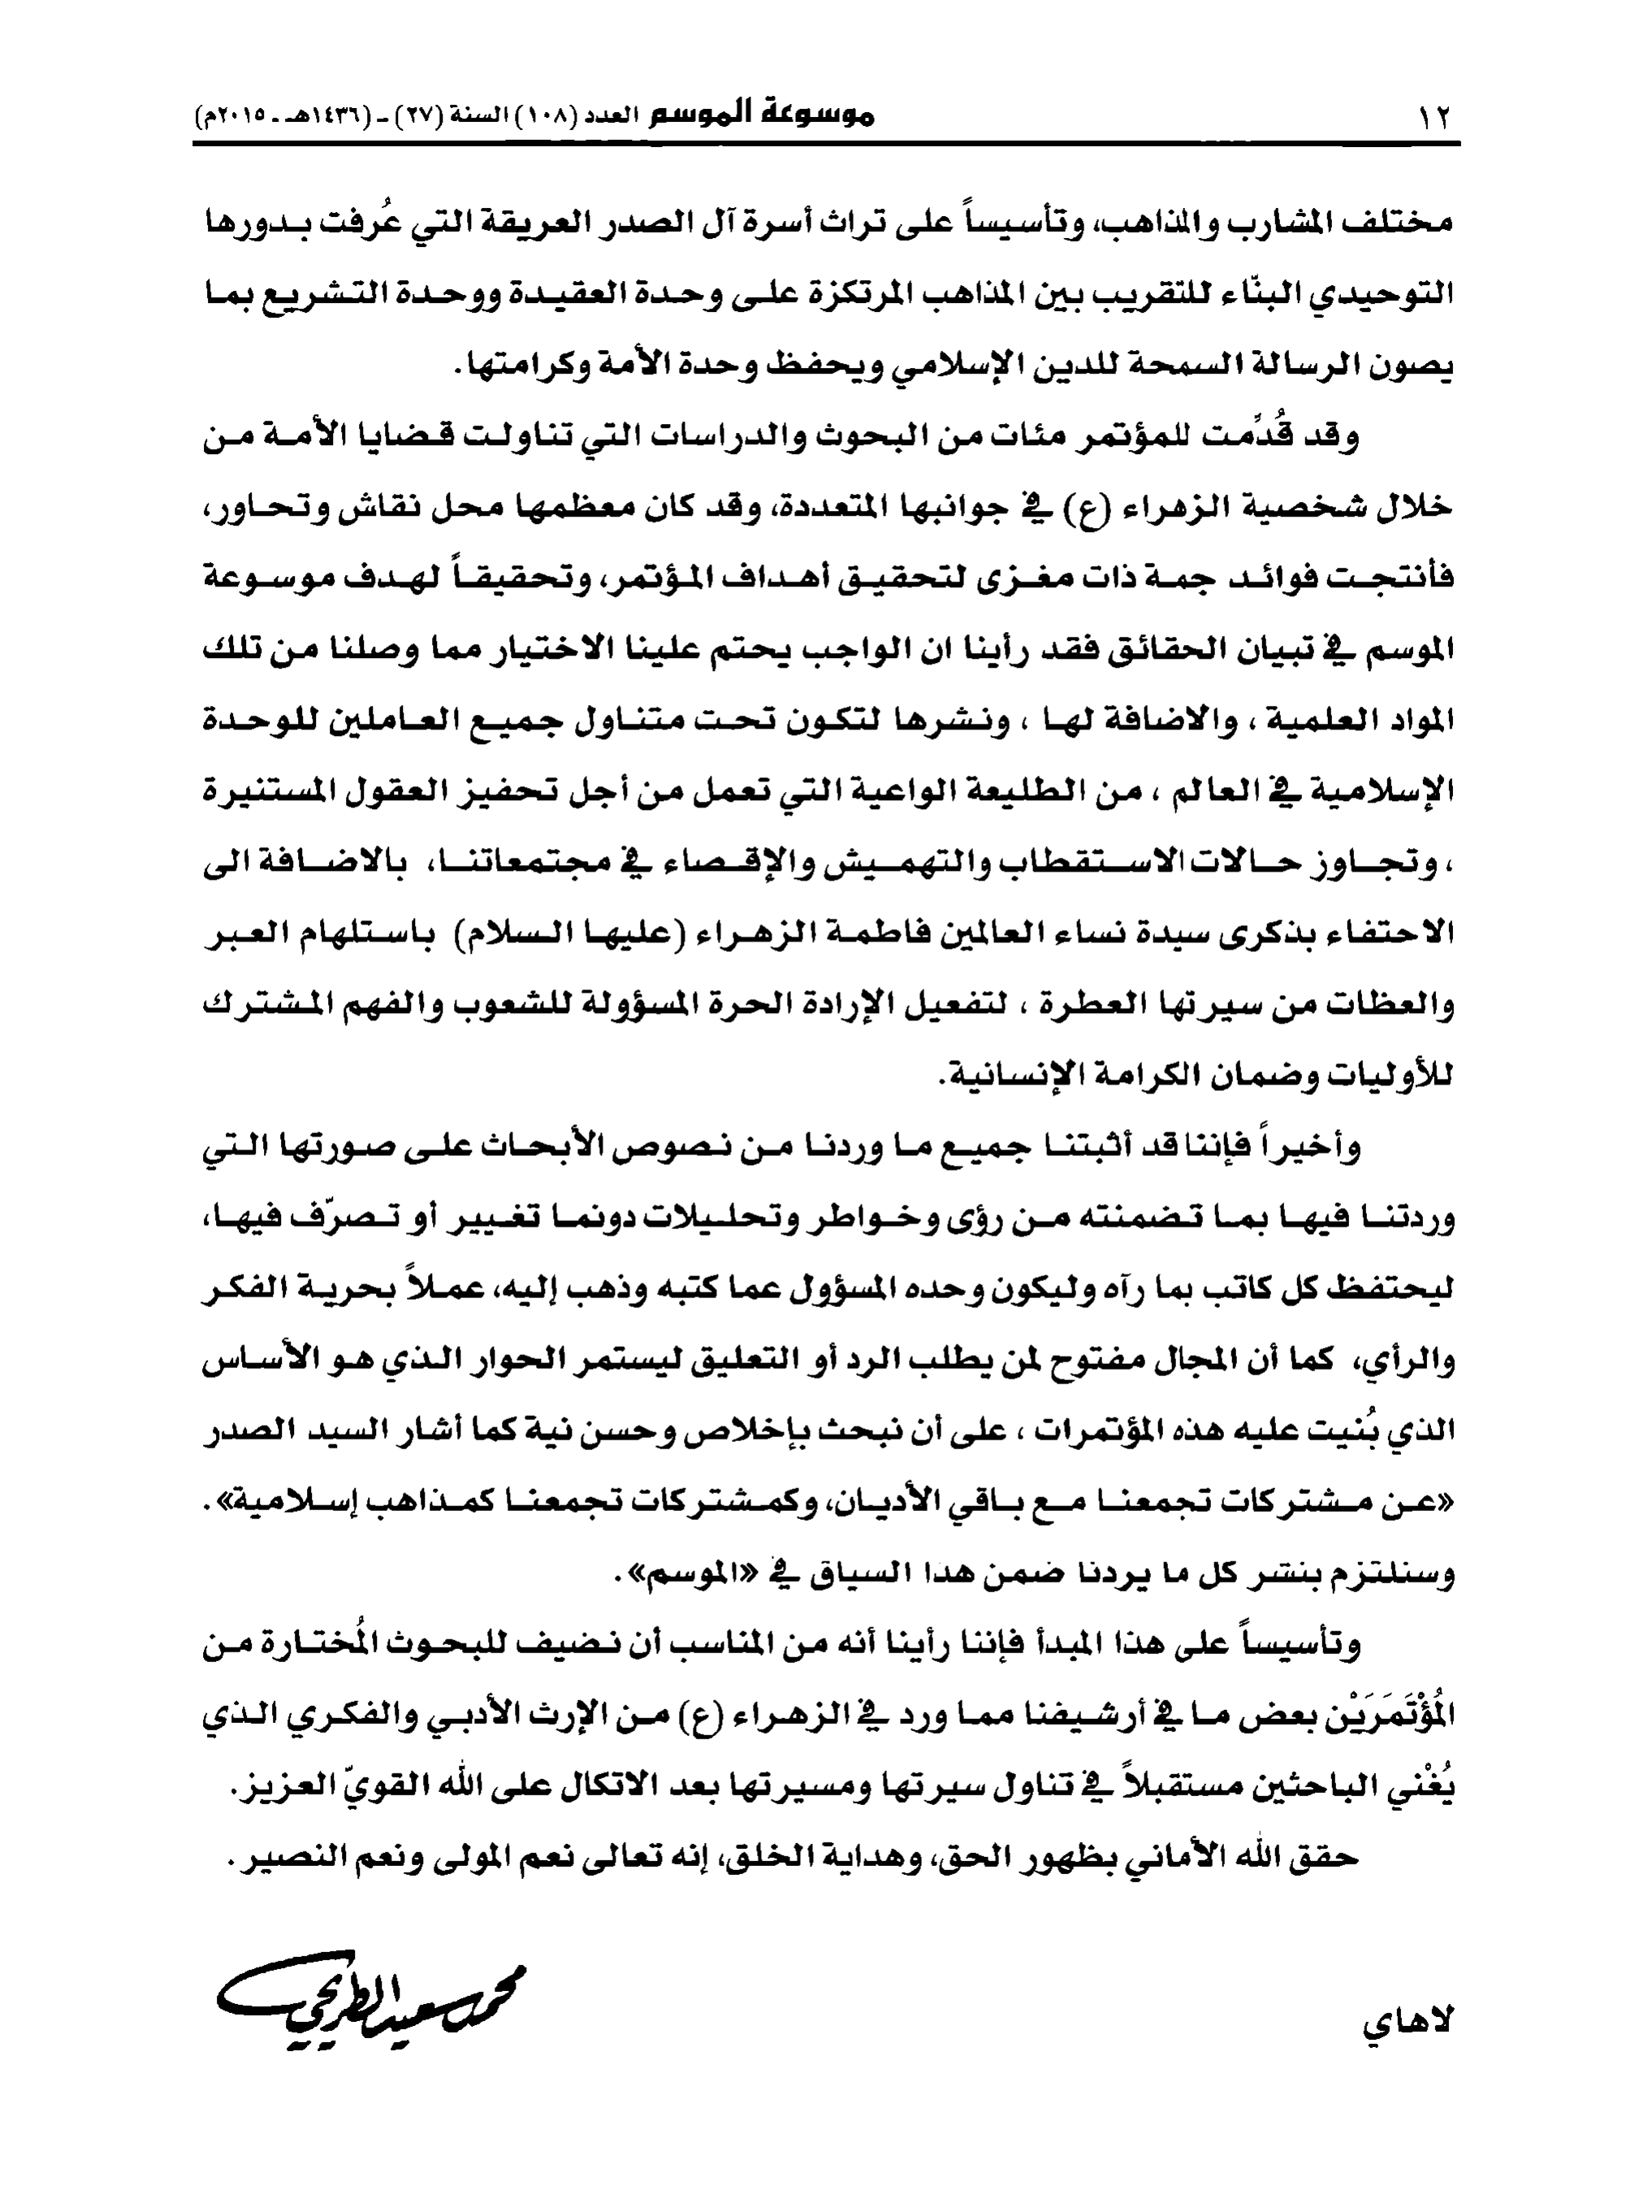 ١٢
موسوعة الموسم العدد (١٠٨) السنة (٢٧) - (١٤٣٦هـ - ٢٠١٥م)
مختلف المشارب والمذاهب، وتأسيساً على تراث أسرة آل الصدر العريقة التي عُرفت بدورها
التوحيدي البنّاء للتقريب بين المذاهب المرتكزة على وحدة العقيدة ووحدة التشريع بما
يصون الرسالة السمحة للدين الإسلامي ويحفظ وحدة الأمة وكرامتها.
وقد قُدّمت للمؤتمر مئات من البحوث والدراسات التي تناولت قضايا الأمة من
خلال شخصية الزهراء (ع) في جوانبها المتعددة، وقد كان معظمها محل نقاش وتحاور،
فأنتجت فوائد جمة ذات مغزى لتحقيق أهداف المؤتمر، وتحقيقاً لهدف موسوعة
الموسم في تبيان الحقائق فقد رأينا ان الواجب يحتم علينا الاختيار مما وصلنا من تلك
المواد العلمية ، والاضافة لها ، ونشرها لتكون تحت متناول جميع العاملين للوحدة
الإسلامية في العالم ، من الطليعة الواعية التي تعمل من أجل تحفيز العقول المستنيرة
، وتجاوز حالات الاستقطاب والتهميش والإقصاء في مجتمعاتنا، بالاضافة الى
الاحتفاء بذكرى سيدة نساء العالمين فاطمة الزهراء (عليها السلام) باستلهام العبر
والعظات من سيرتها العطرة ، لتفعيل الإرادة الحرة المسؤولة للشعوب والفهم المشترك
للأوليات وضمان الكرامة الإنسانية.
وأخيراً فإننا قد أثبتنا جميع ما وردنا من نصوص الأبحاث على صورتها التي
وردتنا فيها بما تضمنته من رؤى وخواطر وتحليلات دونما تغيير أو تصرّف فيها،
ليحتفظ كل كاتب بما رآه وليكون وحده المسؤول عما كتبه وذهب إليه، عملاً بحرية الفكر
والرأي، كما أن المجال مفتوح لمن يطلب الرد أو التعليق ليستمر الحوار الذي هو الأساس
الذي بُنيت عليه هذه المؤتمرات ، على أن نبحث بإخلاص وحسن نية كما أشار السيد الصدر
«عن مشتركات تجمعنا مع باقي الأديان، وكمشتركات تجمعنا كمذاهب إسلامية».
وسنلتزم بنشر كل ما يردنا ضمن هذا السياق في «الموسم».
وتأسيساً على هذا المبدأ فإننا رأينا أنه من المناسب أن نضيف للبحوث المُختارة من
المُؤْتَمَرَيْن بعض ما في أرشيفنا مما ورد في الزهراء (ع) من الإرث الأدبي والفكري الذي
يُغْني الباحثين مستقبلاً في تناول سيرتها ومسيرتها بعد الاتكال على الله القويّ العزيز.
حقق الله الأماني بظهور الحق، وهداية الخلق، إنه تعالى نعم المولى ونعم النصير.
لاهاي
محمد سعيد الطريحي